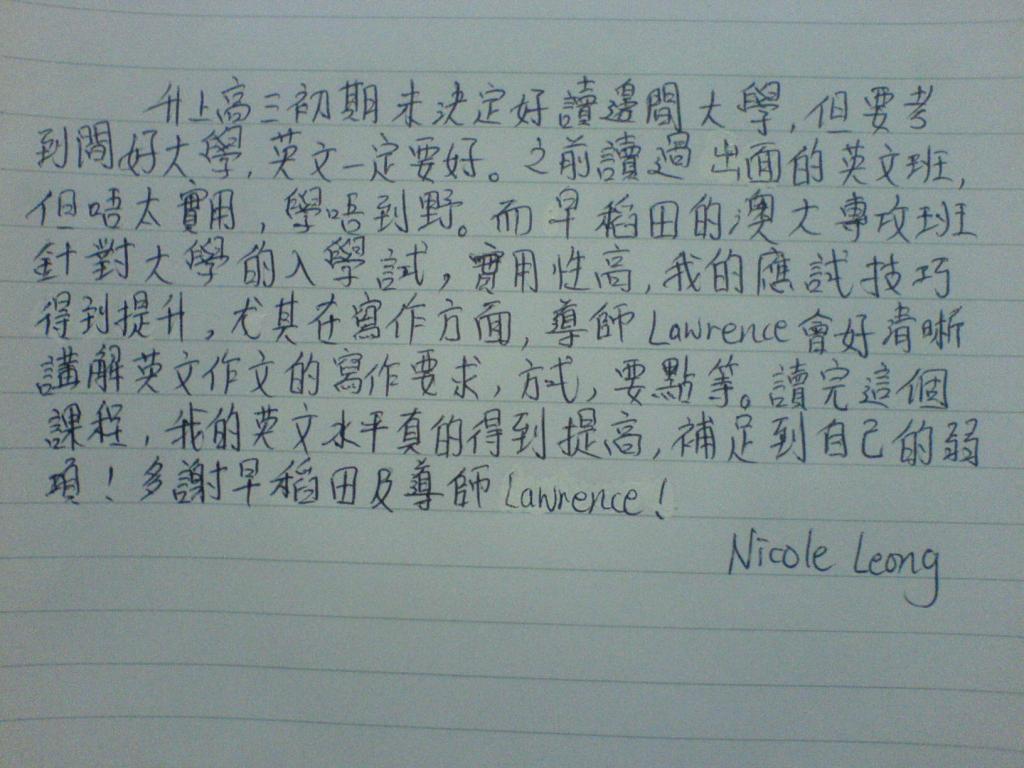 升上高三初期未決定好讀邊間大學,但要考
到間好大學,英文一定要好。之前讀過出面的英文班,
但唔太實用,學唔到野。而早稻田的澳大專攻班
針對大學的入學試,實用性高,我的應試技巧
得到提升,尤其在寫作方面,導師Lawrence會好清晰
講解英文作文的寫作要求,方式,要點等。讀完這個
課程,我的英文水平真的得到提高,補足到自己的弱
項!多謝早稻田及導師Lawrence!
Nicole Leong